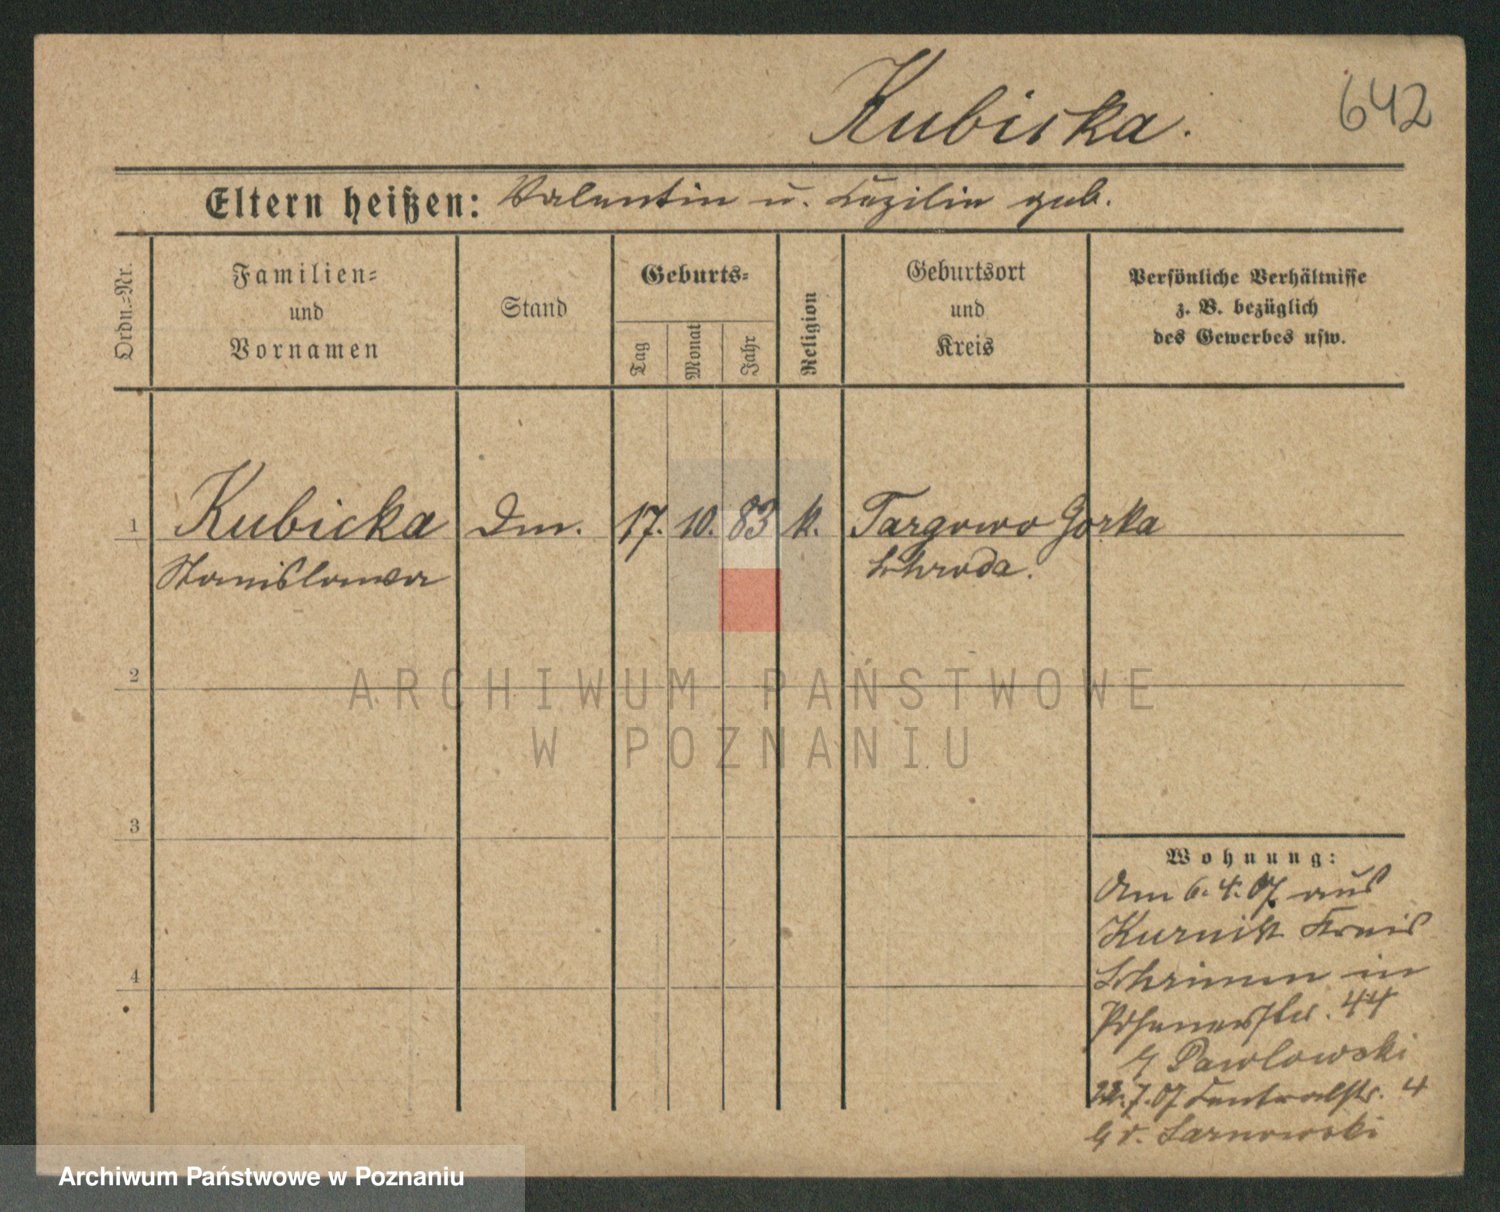 Kubicka.
642
Eltern heißen: Valentin u. Cezilie geb.
Ordn.-Nr.
Familien-
und
Vornamen
Stand
Geburts-
Tag
Monat
Jahr
Religion
Geburtsort
und
Kreis
Persönliche Verhältnisse
z. B. bezüglich
des Gewerbes usw.
1 Kubicka Dm. 17. 10. 83 k. Targowo Gorka
Stanislawa Schroda.
2
3
4
Wohnung:
Am 6.4.07 aus
Kurnik Kreis
Schrimm in
Posenerstr. 44
b/ Pawlowski
22.7.07 Centralstr. 4
Sarnowski
ARCHIWUM PAŃSTWOWE
W POZNANIU
Archiwum Państwowe w Poznaniu